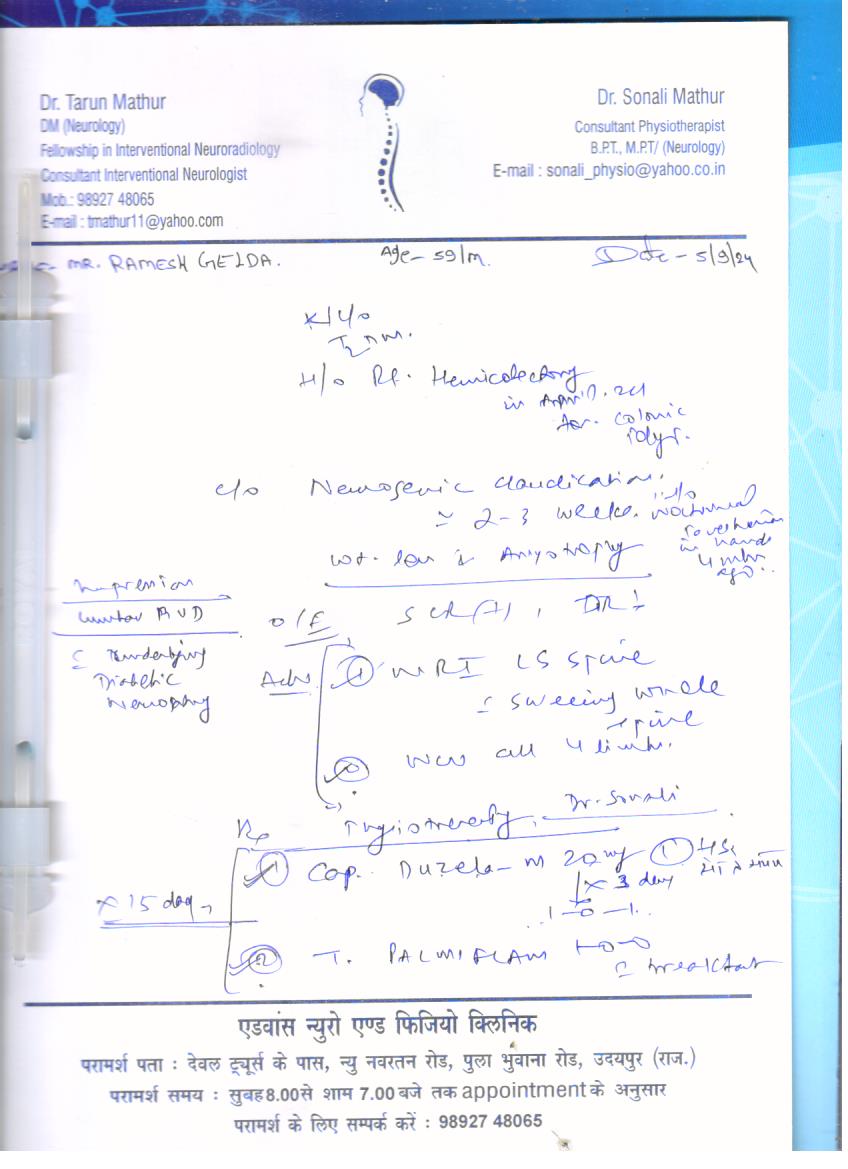 Dr. Tarun Mathur
DM (Neurology)
Fellowship in Interventional Neuroradiology
Consultant Interventional Neurologist
Mob.: 98927 48065
E-mail : tmathur11@yahoo.com
Dr. Sonali Mathur
Consultant Physiotherapist
B.P.T., M.P.T/ (Neurology)
E-mail : sonali_physio@yahoo.co.in
MR. RAMESH GELDA. Age - 59/m. Date - 5/9/24
K/c/o
T2 DM.
H/o Rt. Hemicolectomy
in April. 24
for. colonic
polyp.
c/o Neurogenic claudication.
2-3 weeks.
in hands
4 mths
ago..
wt. loss & Amyotrophy
Impression
Lumbar PIVD
c underlying
Diabetic
Neuropathy
O/E SLR (+), DTR
Adv. 1 MRI LS spine
c screening whole
spine
2 NCV all 4 limbs.
Physiotherapy. Dr. Sonali
Rx
x 15 day
1 Cap. Duzela-M 20 mg 1 HS
x 3 day
1-0-1.
2 T. PALMIFLAM 1-0-0
c breakfast
एडवांस न्युरो एण्ड फिजियो क्लिनिक
परामर्श पता : देवल ट्यूर्स के पास, न्यु नवरतन रोड, पुला भुवाना रोड, उदयपुर (राज.)
परामर्श समय : सुबह 8.00 से शाम 7.00 बजे तक appointment के अनुसार
परामर्श के लिए सम्पर्क करें : 98927 48065